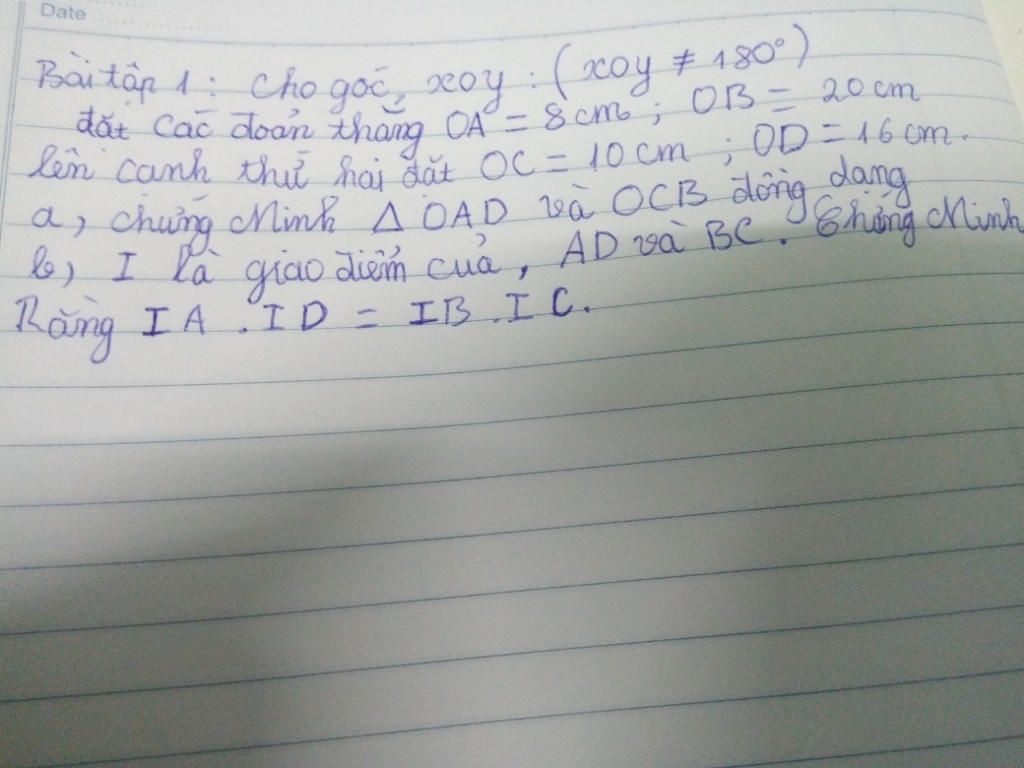 Date
Bài tập 1: Cho góc, xOy : (xOy ≠ 180°)
đặt các đoản thẳng OA = 8cm ; OB = 20cm
lên canh thứ hai đặt OC = 10 cm ; OD = 16 cm.
a, chứng Minh △ OAD và OCB đông dang
b, I là giao điểm của, AD và BC. Chứng Minh
Rằng IA . ID = IB . IC.